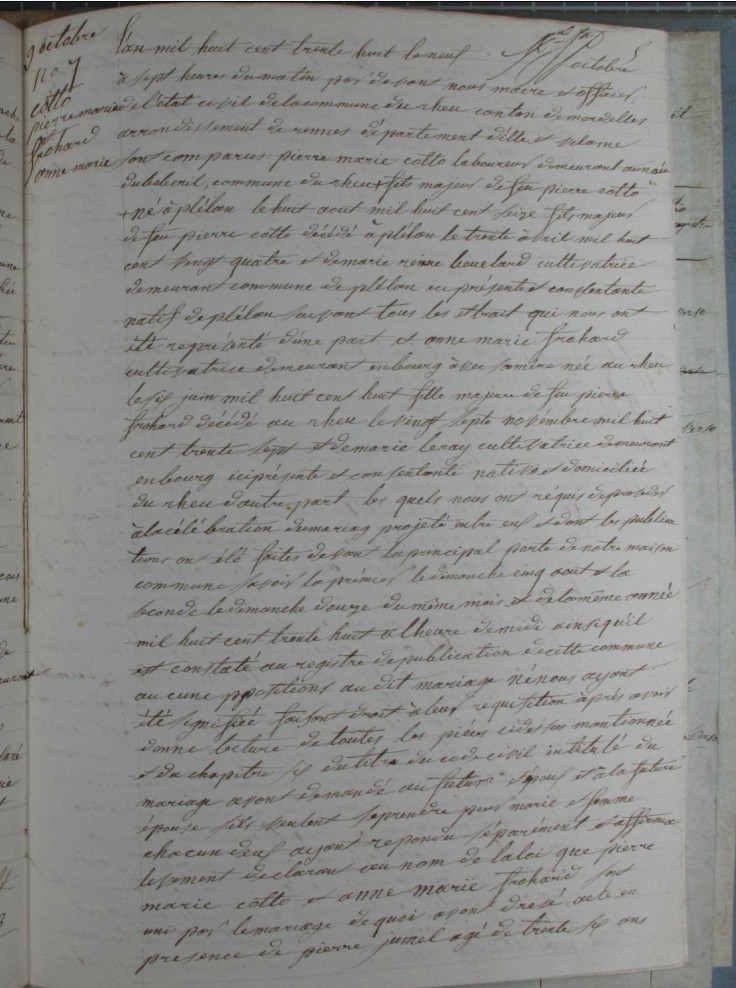 9 octobre
no 7
cotto
pierre marie
et
frohard
anne marie
L'an mil huit cent trente huit le neuf octobre
à sept heures du matin par devant nous maire et officier
de l'état civil de la commune du rheu canton de mordelles
arrondissement de rennes département d'ille et vilaine
sont comparus pierre marie cotto laboureur demeurant au
commune du rheu + fils majeur de feu pierre cotto
+ né à plélan le huit aout mil huit cent seize fils majeur
de feu pierre cotto décédé à plélan le trente avril mil huit
cent vingt quatre et de marie reinne bouelard cultivatrice
demeurant commune de plélan ici présente et consentante
natif de plélan suivant tous les éxtrait qui nous ont
été représenté d'une part et anne marie frohard
cultivatrice demeurant en bourg avec sa mère née au rheu
le six juin mil huit cent huit fille majeure de feu pierre
frohard décédé au rheu le vingt septe novembre mil huit
cent trente sept et de marie leray cultivatrice demeurant
en bourg ici présente et consentante native et domiciliée
du rheu d'autre part les quels nous ont réquis de proceder
à la célébration du mariag projeté entre eux et dont les publica
tions ont été faites devant la principal porte de notre maison
commune savoir la prémier le dimanche cinq aout et la
seconde le dimanche douze du même mois et de la même année
mil huit cent trente huit a lheure de midi ainsi quil
est constaté au registre de publication de cette commune
au cune oppositions au dit mariage né nous ayant
été signifiée faisant droit à leur requisition après avoir
donne lecture de toutes les pièces cidessus mantionnée
et du chapitre six du titre du code civil intitulé du
mariage avons demandé au futur époux et à la future
épouse sils veulent se prendre pour marie et femme
chacun deux ayant repondu séparément et affirma
tivement declarons au nom de la loi que pierre
marie cotto et anne marie frohard sont
uni par le mariage de quoi avons dressé acte en
presence de pierre jumel agé de trente six ans